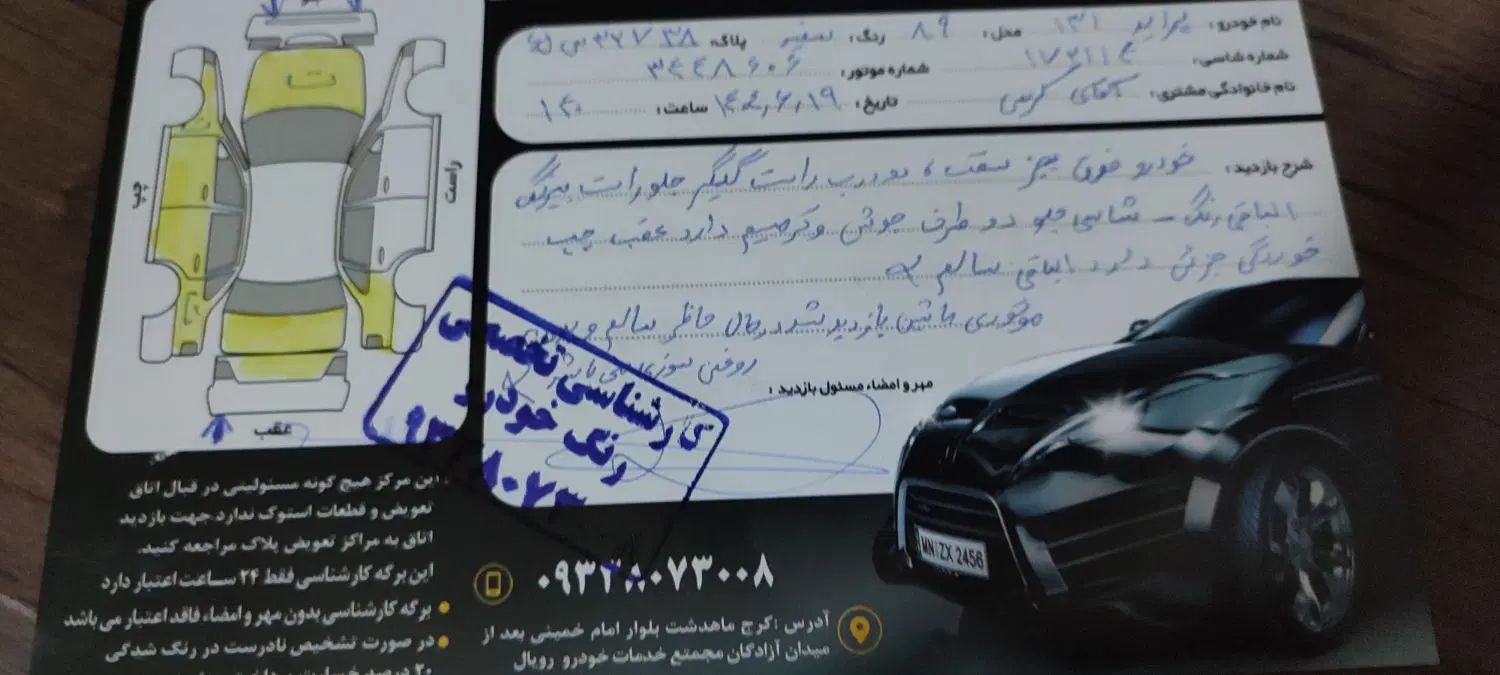 نام خودرو: پراید ۱۳۱ مدل: ۸۹ رنگ: سفید پلاک: ۳۸ ۳۲۷
شماره شاسی: ۱۷۲۱۱۴ شماره موتور: ۳۴۴۸۶۰۶
نام خانوادگی مشتری: آقای کرمی تاریخ: ۱۴۰۲,۶,۱۹ ساعت: ۱۳۰
شرح بازدید: خودرو فوق بجز سقف، دو درب راست گلگیر جلو راست بیرنگ
الباقی رنگ - شاسی جلو دو طرف جوش و ترمیم دارد عقب چپ
خوردگی جزئی دارد الباقی سالم
موتوری ماشین بازدید شد در حال حاضر سالم و بدون
روغن سوزی می باشد
مهر و امضاء مسئول بازدید:
کارشناسی تخصصی
رنگ خودرو
چپ
راست
عقب
این مرکز هیچ گونه مسئولیتی در قبال اتاق
تعویض و قطعات استوک ندارد.جهت بازدید
اتاق به مراکز تعویض پلاک مراجعه کنید.
این برگه کارشناسی فقط ۲۴ ساعت اعتبار دارد
برگه کارشناسی بدون مهر و امضاء فاقد اعتبار می باشد
در صورت تشخیص نادرست در رنگ شدگی
۲۰ درصد خسارت
۰۹۳۳۸۰۷۳۰۰۸
آدرس :کرج ماهدشت بلوار امام خمینی بعد از
میدان آزادگان مجمتع خدمات خودرو رویال
MN ZX 2456